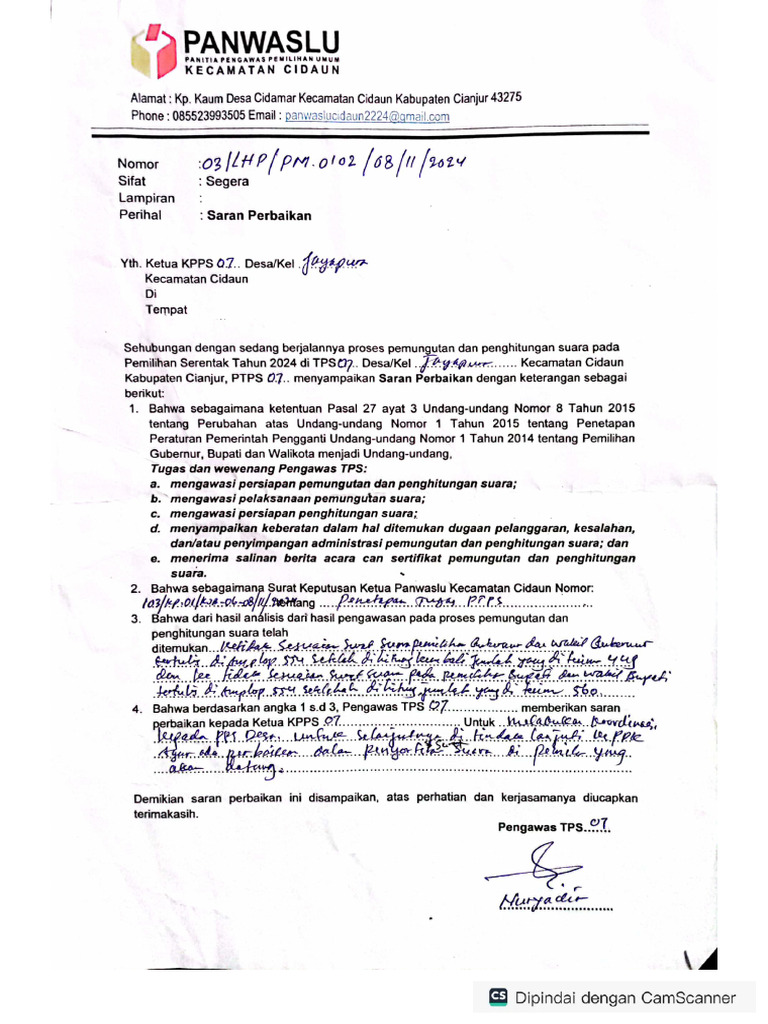 PANWASLU
PANITIA PENGAWAS PEMILIHAN UMUM
KECAMATAN CIDAUN
Alamat : Kp. Kaum Desa Cidamar Kecamatan Cidaun Kabupaten Cianjur 43275
Phone : 085523993505 Email : panwaslucidaun2224@gmail.com
Nomor : 03/LHP/PM.0102/08/11/2024
Sifat : Segera
Lampiran :
Perihal : Saran Perbaikan
Yth. Ketua KPPS 07.. Desa/Kel Jayapura
Kecamatan Cidaun
Di
Tempat
Sehubungan dengan sedang berjalannya proses pemungutan dan penghitungan suara pada
Pemilihan Serentak Tahun 2024 di TPS 07.. Desa/Kel ..Jayapura....... Kecamatan Cidaun
Kabupaten Cianjur, PTPS 07.. menyampaikan Saran Perbaikan dengan keterangan sebagai
berikut:
1. Bahwa sebagaimana ketentuan Pasal 27 ayat 3 Undang-undang Nomor 8 Tahun 2015
tentang Perubahan atas Undang-undang Nomor 1 Tahun 2015 tentang Penetapan
Peraturan Pemerintah Pengganti Undang-undang Nomor 1 Tahun 2014 tentang Pemilihan
Gubernur, Bupati dan Walikota menjadi Undang-undang,
Tugas dan wewenang Pengawas TPS:
a. mengawasi persiapan pemungutan dan penghitungan suara;
b. mengawasi pelaksanaan pemungutan suara;
c. mengawasi persiapan penghitungan suara;
d. menyampaikan keberatan dalam hal ditemukan dugaan pelanggaran, kesalahan,
dan/atau penyimpangan administrasi pemungutan dan penghitungan suara; dan
e. menerima salinan berita acara can sertifikat pemungutan dan penghitungan
suara.
2. Bahwa sebagaimana Surat Keputusan Ketua Panwaslu Kecamatan Cidaun Nomor:
tentang Penetapan Tugas PTPS
3. Bahwa dari hasil analisis dari hasil pengawasan pada proses pemungutan dan
penghitungan suara telah
ditemukan Ketidak Sesuaian Surat Suara pemilihan Gubernur dan Wakil Gubernur
tertulis di Amplop 554 Setelah di hitung kembali Jumlah yang di terima 448
dan ke tidak sesuaian Surat Suara pada pemilihan Bupati dan Wakil Bupati
tertulis di Amplop 554 Setelah di hitung jumlah yang di terima 560
4. Bahwa berdasarkan angka 1 s.d 3, Pengawas TPS 07 memberikan saran
perbaikan kepada Ketua KPPS 07 Untuk melakukan koordinasi
kepada PPS Desa untuk selanjutnya di tindak lanjuti ke PPK
Agar ada perbaikan dalam Penyortiran Surat Suara di Pemilu yang
akan datang.
Demikian saran perbaikan ini disampaikan, atas perhatian dan kerjasamanya diucapkan
terimakasih.
Pengawas TPS 07
Nuryadin
CS Dipindai dengan CamScanner